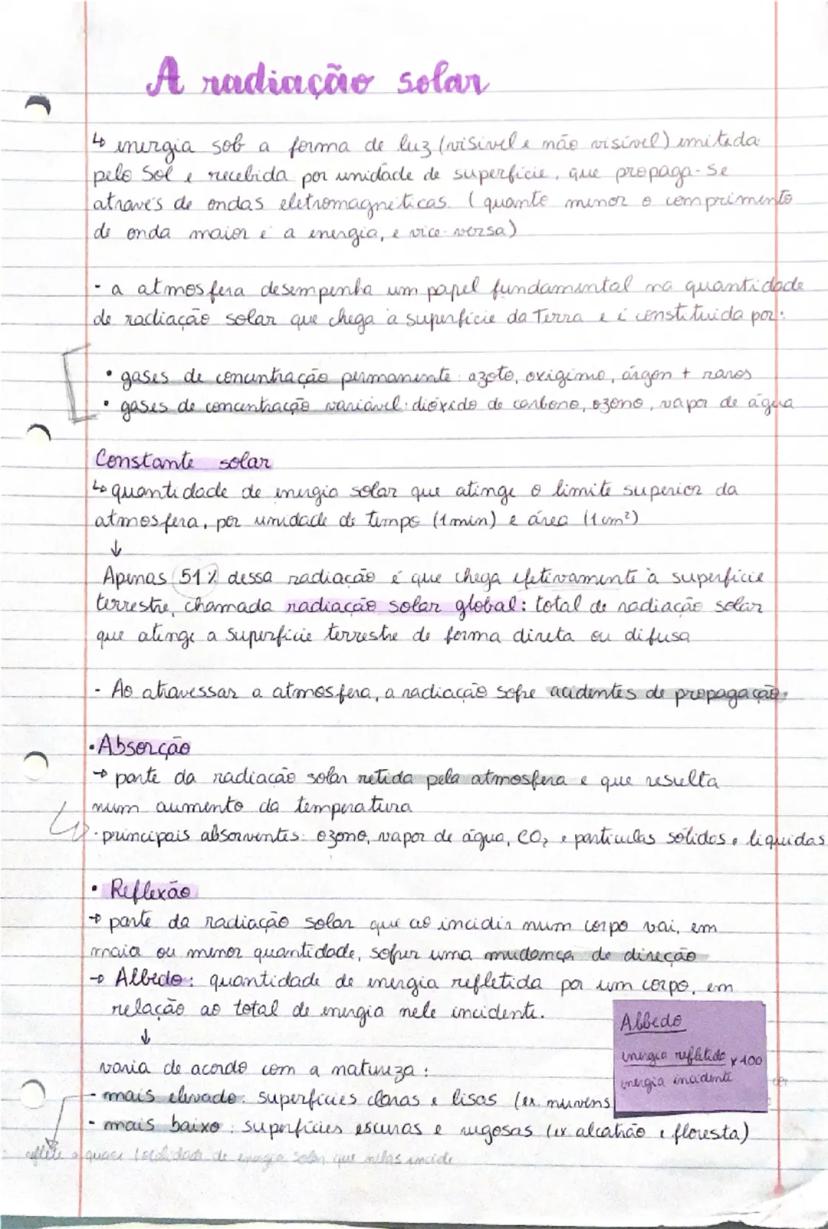 A radiação solar
↳ energia sob a forma de luz (visível e não visível) emitida
pelo Sol e recebida por unidade de superfície, que propaga-se
através de ondas eletromagnéticas. (quanto menor o comprimento
de onda maior é a energia, e vice-versa)
- a atmosfera desempenha um papel fundamental na quantidade
de radiação solar que chega à superfície da Terra e é constituída por:
• gases de concentração permanente: azoto, oxigénio, árgon + raros
• gases de concentração variável: dióxido de carbono, ozono, vapor de água
Constante solar
↳ quantidade de energia solar que atinge o limite superior da
atmosfera, por unidade de tempo (1min) e área (1cm²)
↓
Apenas 51% dessa radiação é que chega efetivamente à superfície
terrestre, chamada radiação solar global: total de radiação solar
que atinge a superfície terrestre de forma direta ou difusa
- Ao atravessar a atmosfera, a radiação sofre acidentes de propagação:
• Absorção
→ parte da radiação solar retida pela atmosfera e que resulta
num aumento da temperatura
· principais absorventes: ozono, vapor de água, CO₂ e partículas sólidas e líquidas
• Reflexão
→ parte da radiação solar que ao incidir num corpo vai, em
maior ou menor quantidade, sofrer uma mudança de direção
→ Albedo: quantidade de energia refletida por um corpo, em
relação ao total de energia nele incidente.
↓
Albedo
energia refletida x 100
energia incidente
varia de acordo com a natureza:
- mais elevado: superfícies claras e lisas (ex. nuvens
- mais baixo: superfícies escuras e rugosas (ex alcatrão e floresta)
reflete a quase totalidade de energia solar que nelas incide